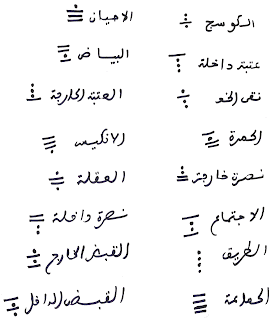 الكوسج
عتبة داخلة
نقى الخد
الحمرة
نصرة خارجة
الاجتماع
الطريق
الجماعة
الاحيان
البياض
العتبة الخارجة
الانكيس
العقلة
نصرة داخلة
القبض الخارج
القبض الداخل